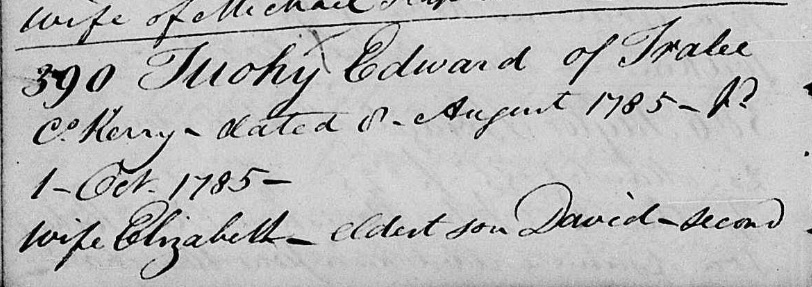 wife of Michael
390 Tuohy Edward of Tralee
Co. Kerry - dated 8 - August 1785 - pd
1 - Oct. 1785 -
wife Elizabeth - eldest son David - second